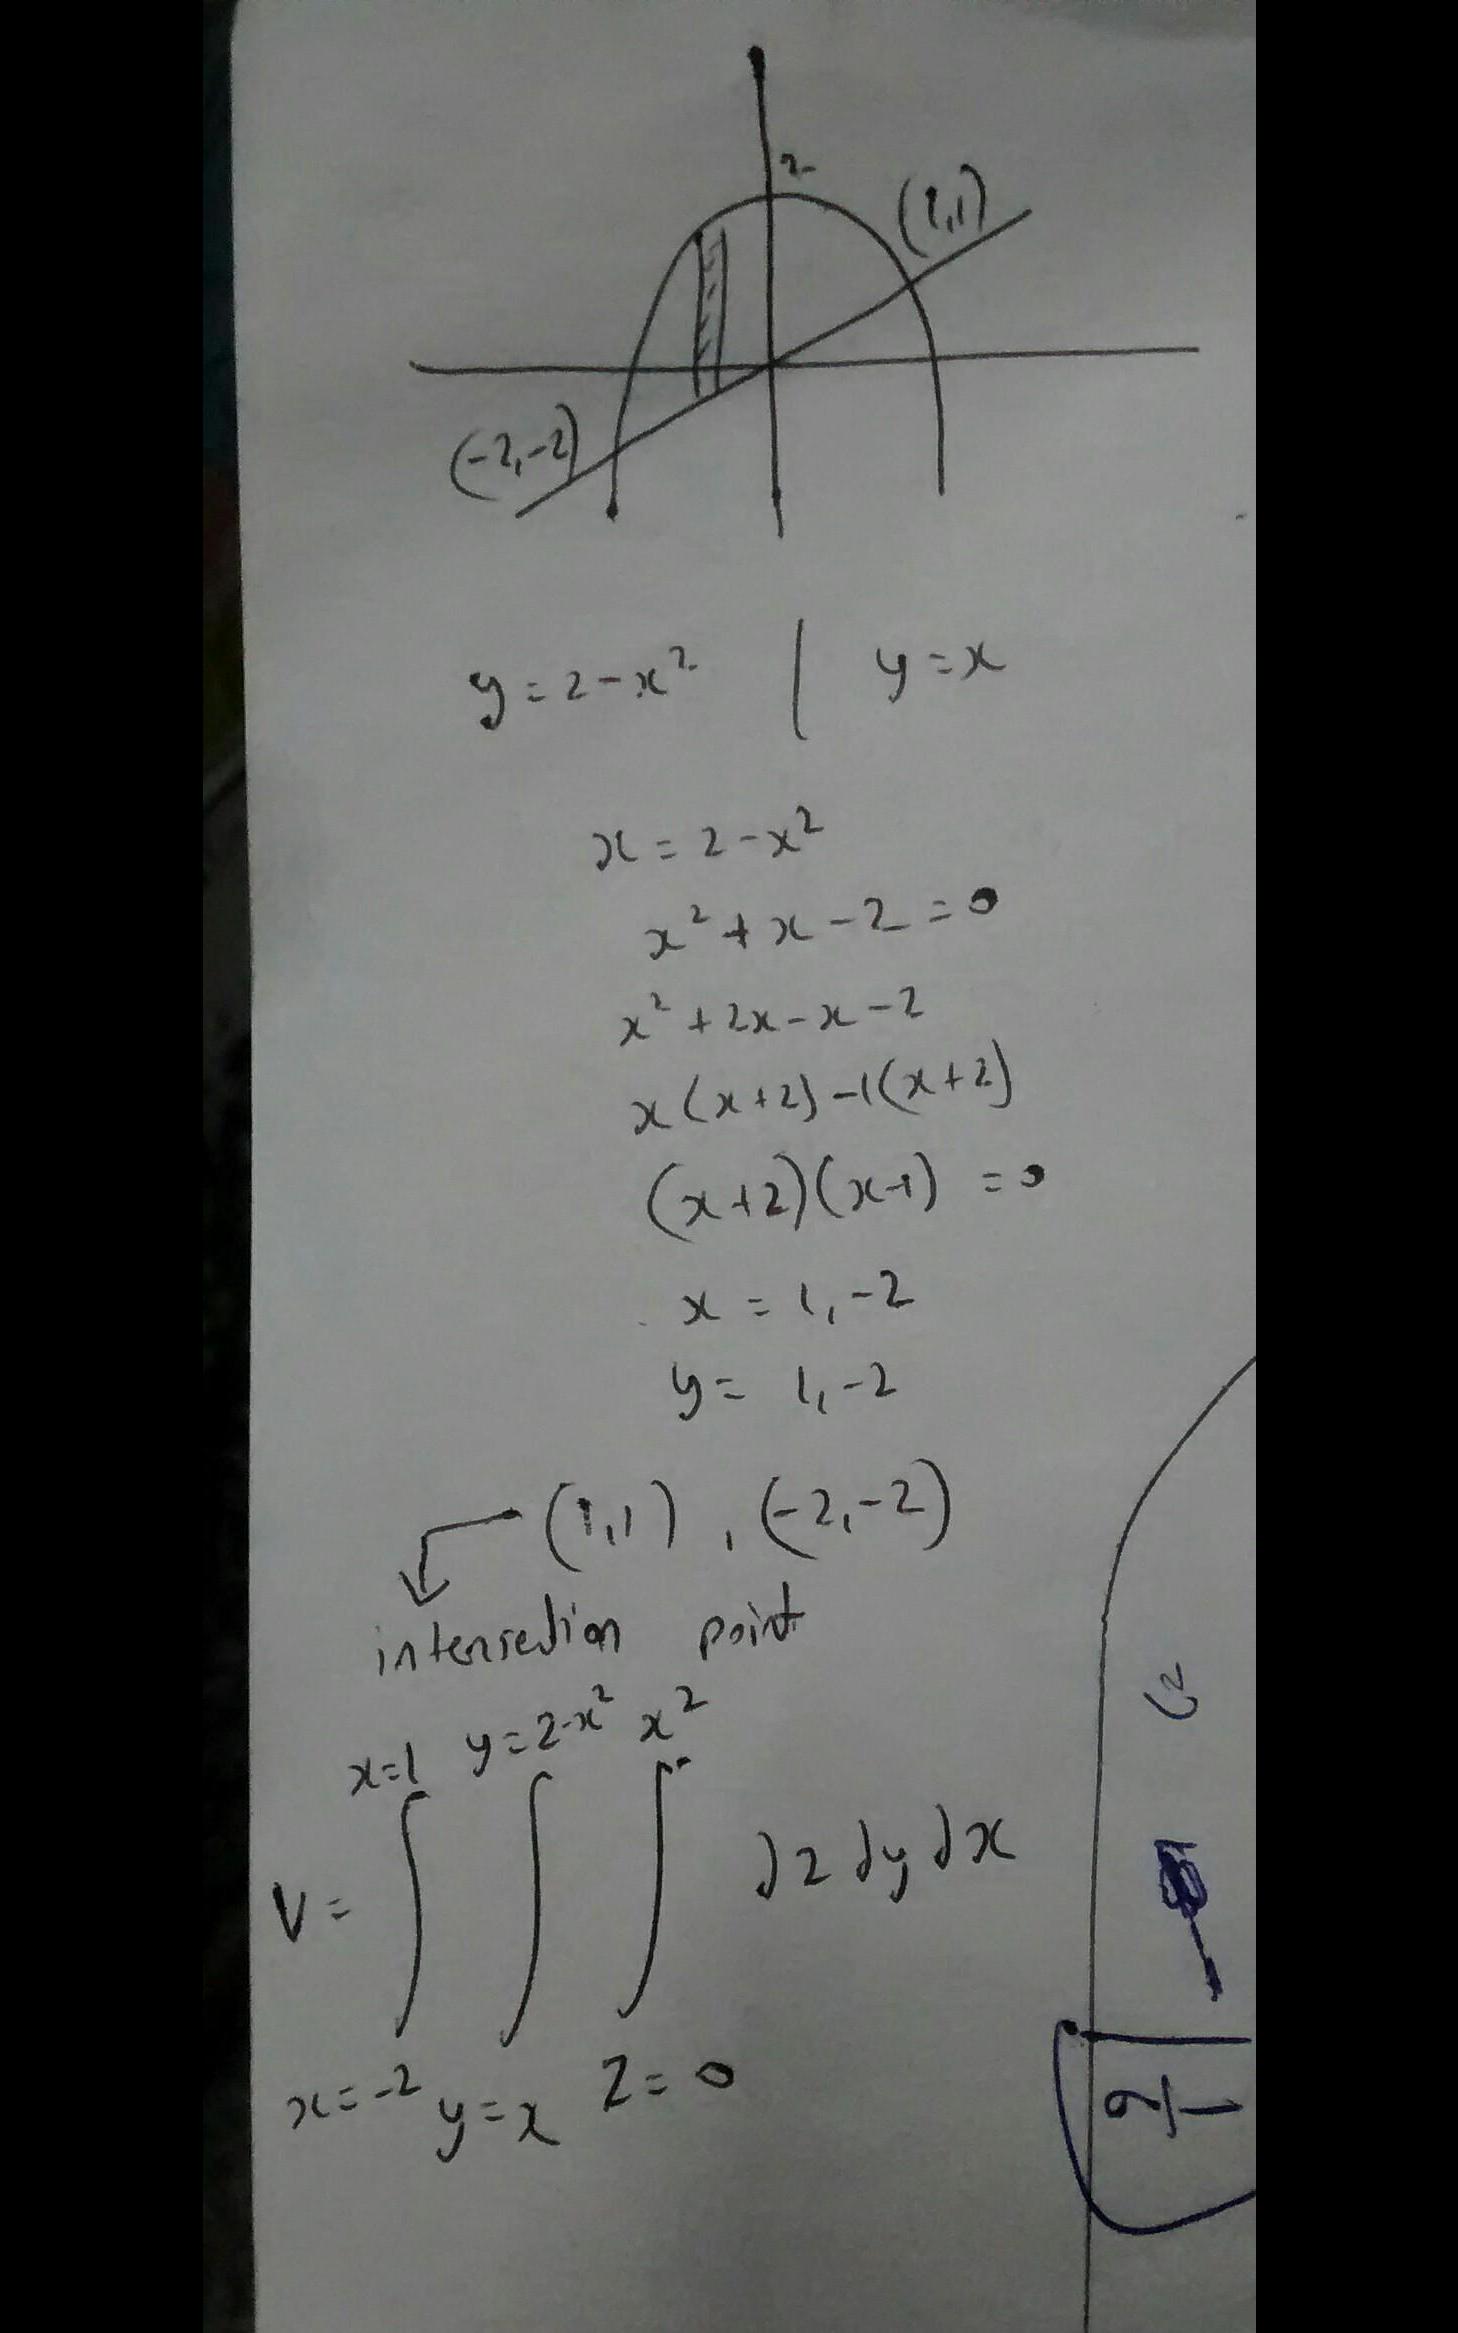 2
(1,1)
(-2,-2)
y = 2 - x² | y = x
x = 2 - x²
x² + x - 2 = 0
x² + 2x - x - 2
x(x+2) -1(x+2)
(x+2)(x-1) = 0
x = 1, -2
y = 1, -2
(1,1) , (-2,-2)
intersection point
x=1 y=2-x² x²
V = ∫ ∫ ∫ dz dy dx
x=-2 y=x z=0